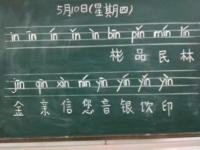 5月10日(星期四)
in in ín in ìn bīn pǐn mín lín
彬 品 民 林
jīn qīn xìn nín yīn yín yǐn yìn
金 亲 信 您 音 银 饮 印